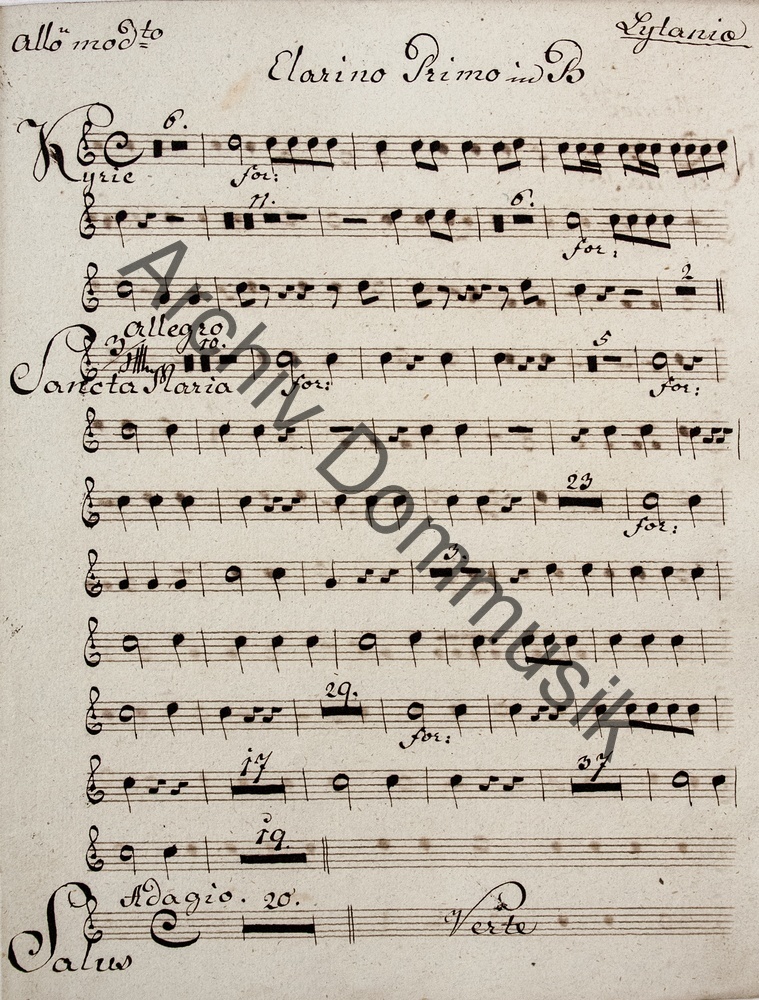 Allo modto
Lytaniæ
Clarino Primo in B
6.
Kyrie for:
11. 6.
for:
2
Allegro
3 10. 5
Sancta Maria for: for:
23
for:
3.
29.
for:
17 37
19.
Adagio. 20.
Salus
Verte
Archiv Dommusik